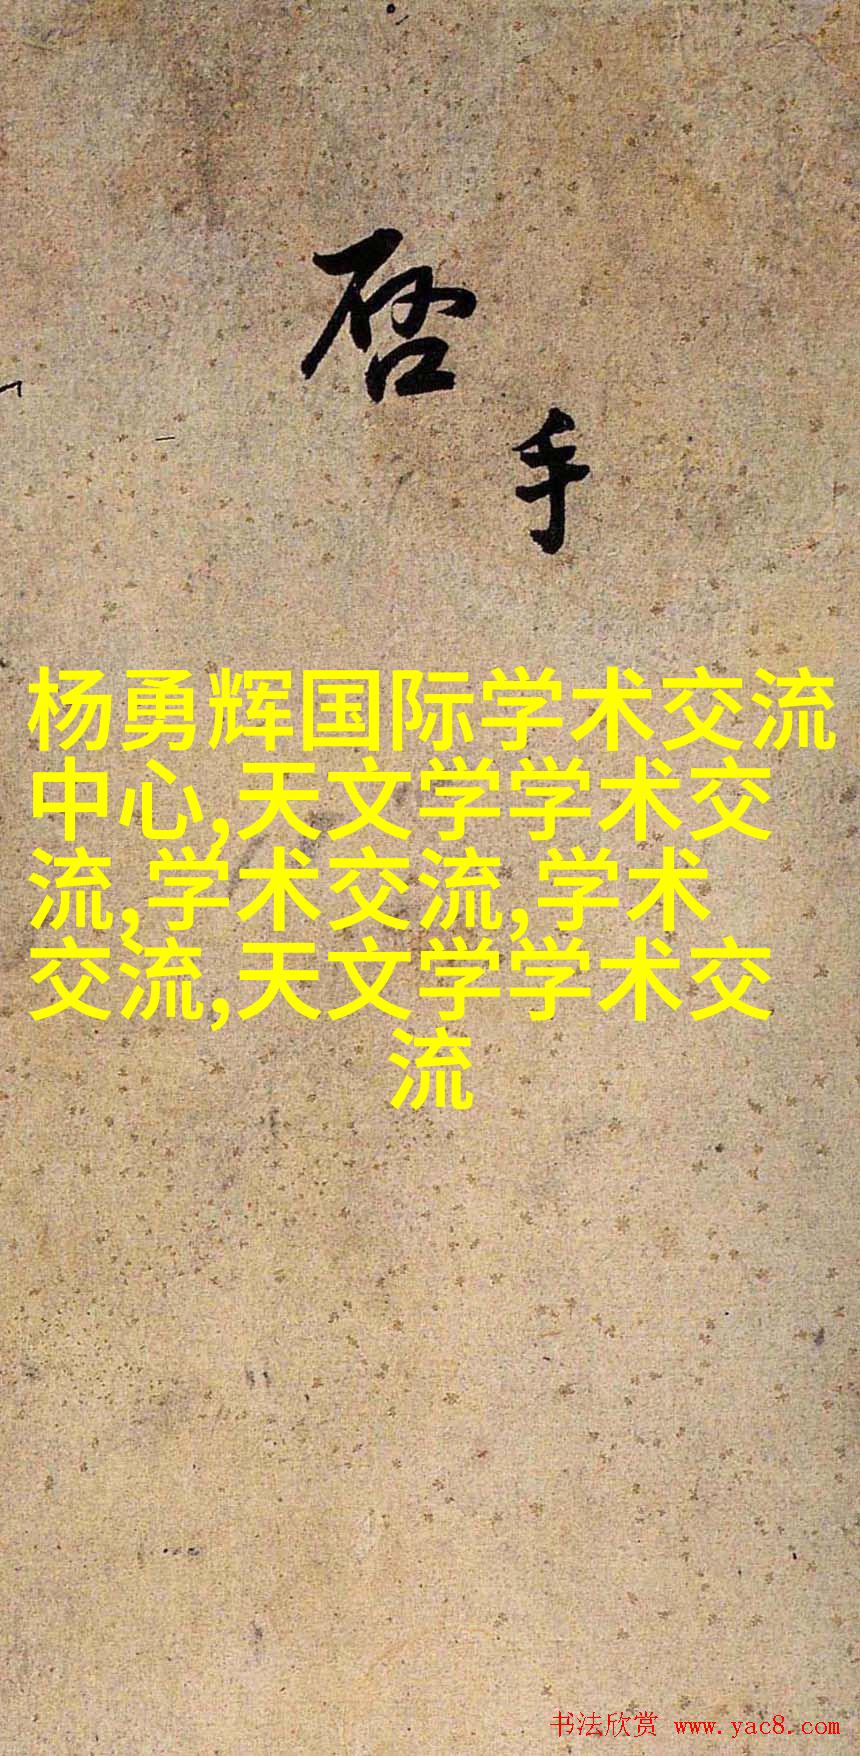 启
手
杨勇辉国际学术交流
中心,天文学学术交
流,学术交流,学术
交流,天文学学术交
流
书法欣赏 www.yac8.com